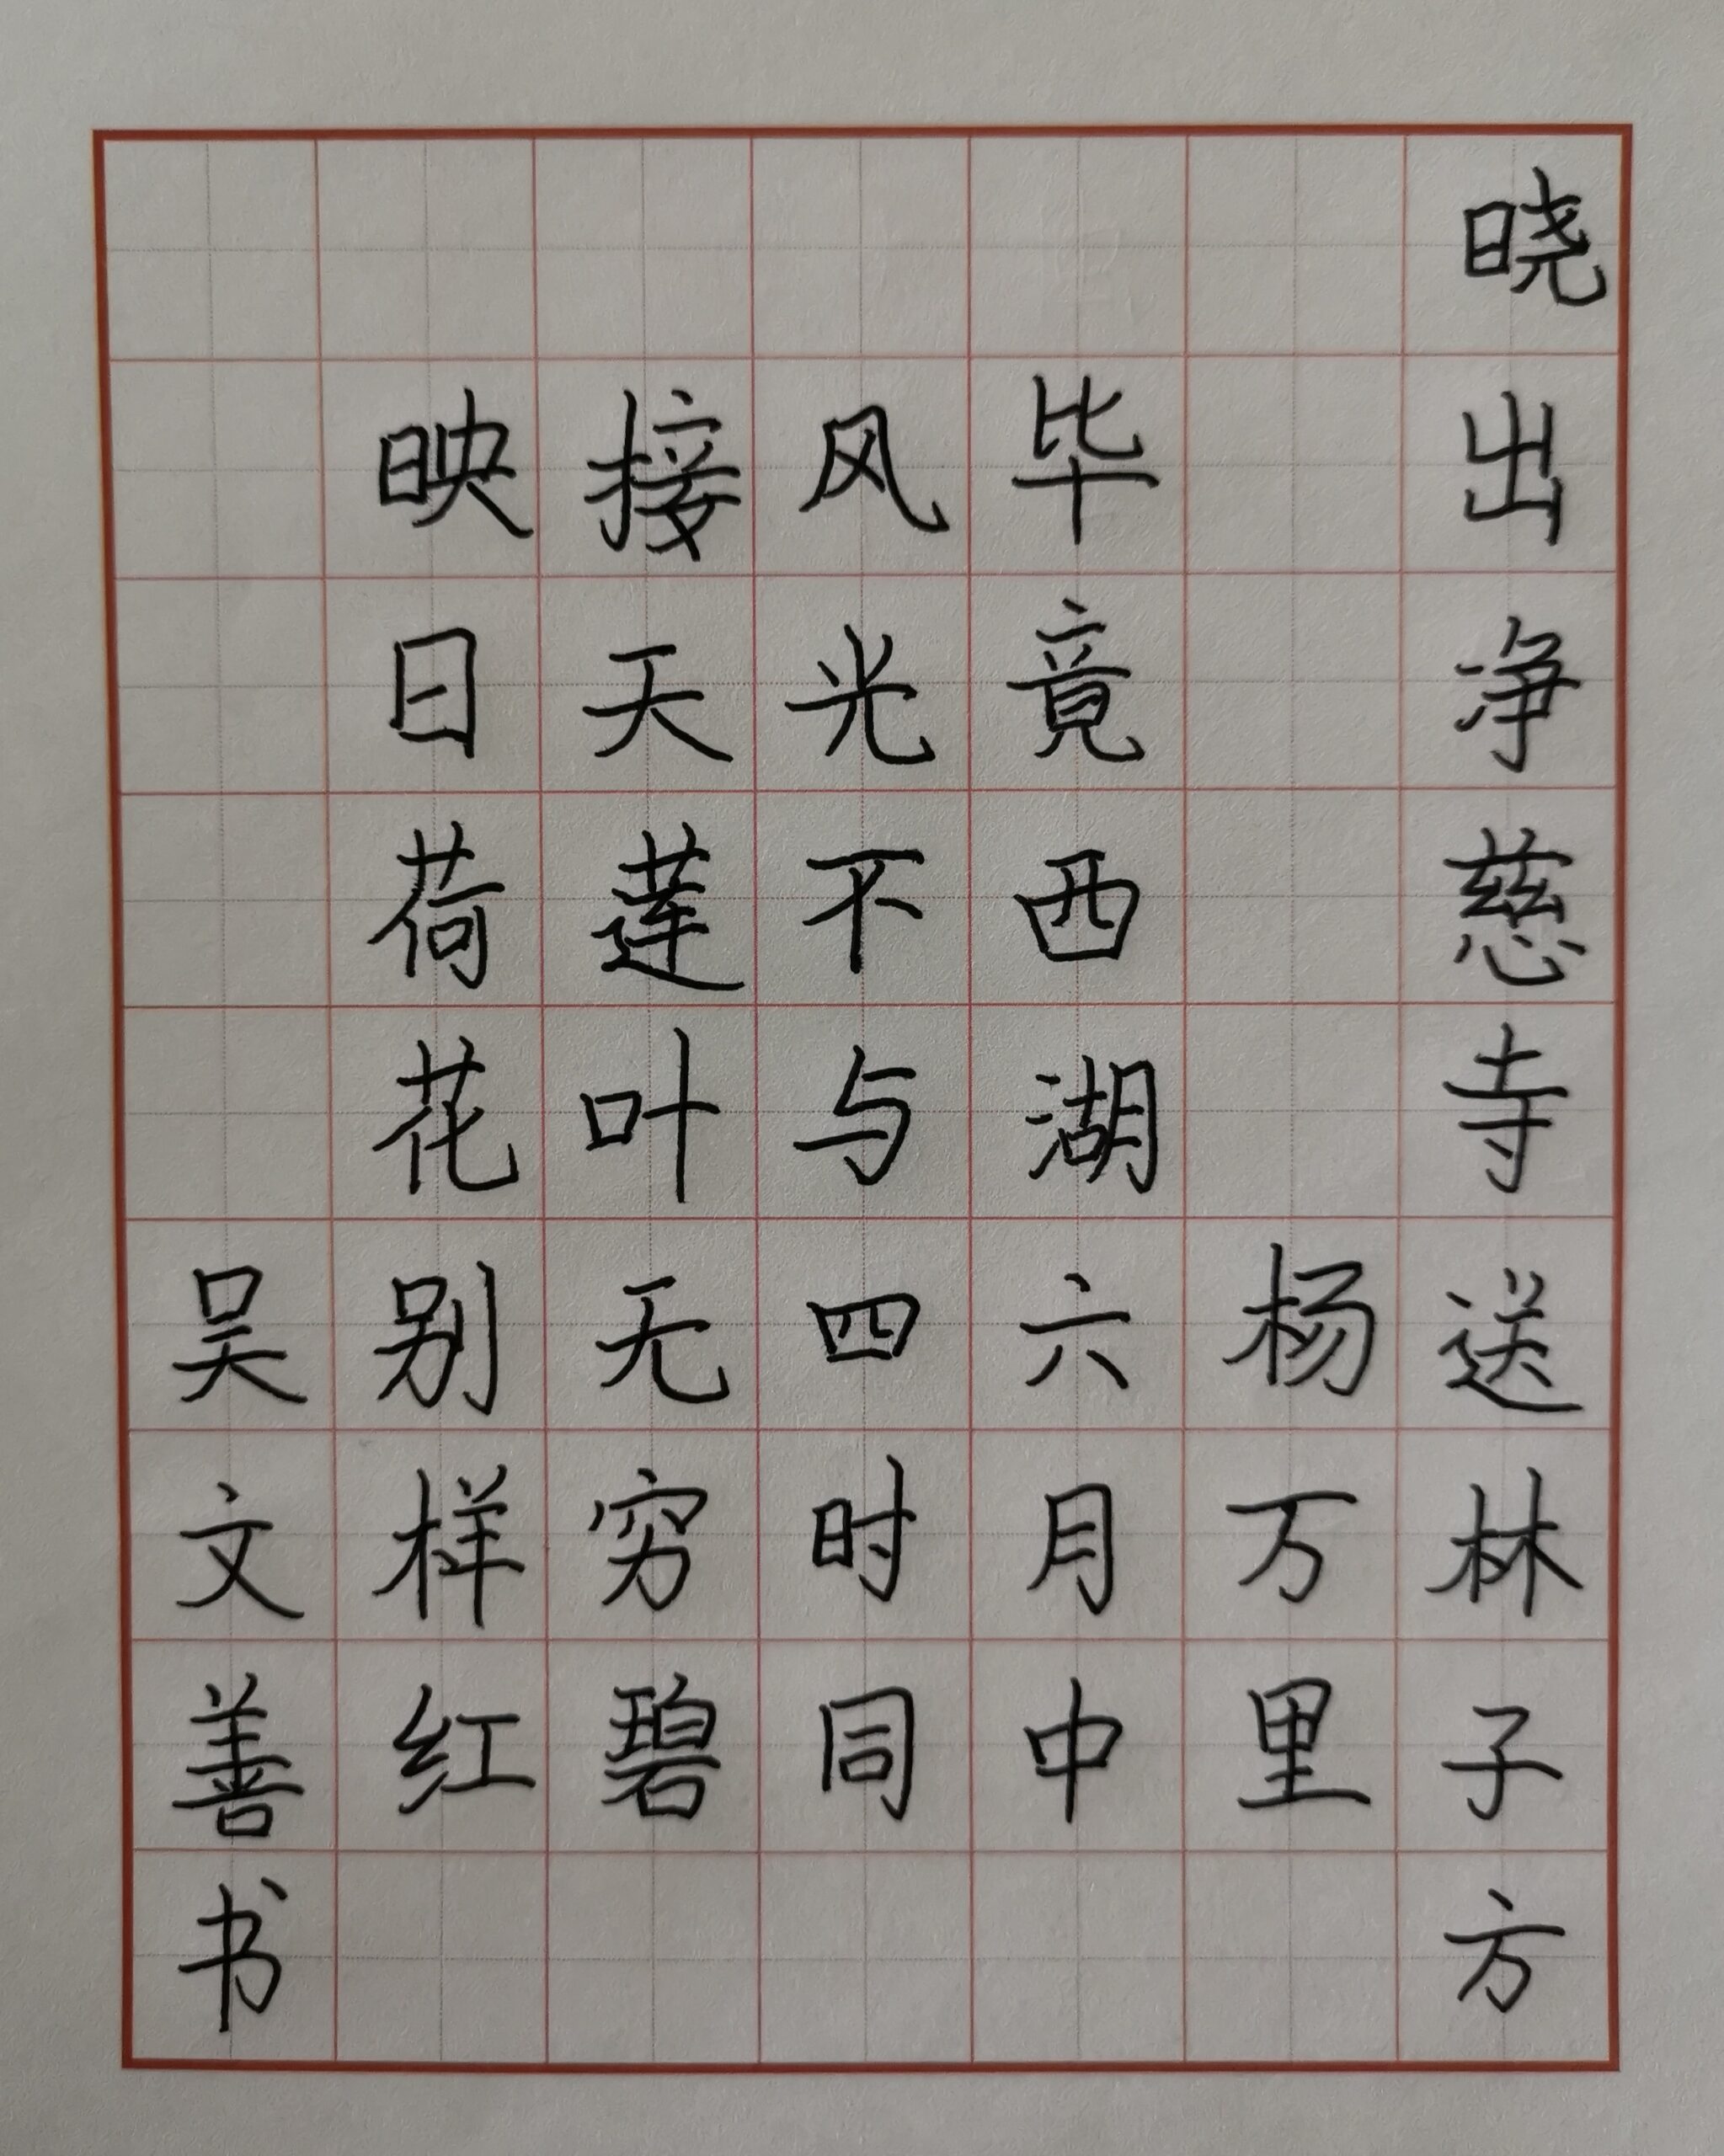 晓出净慈寺送林子方
杨万里
毕竟西湖六月中
风光不与四时同
接天莲叶无穷碧
映日荷花别样红
吴文善书